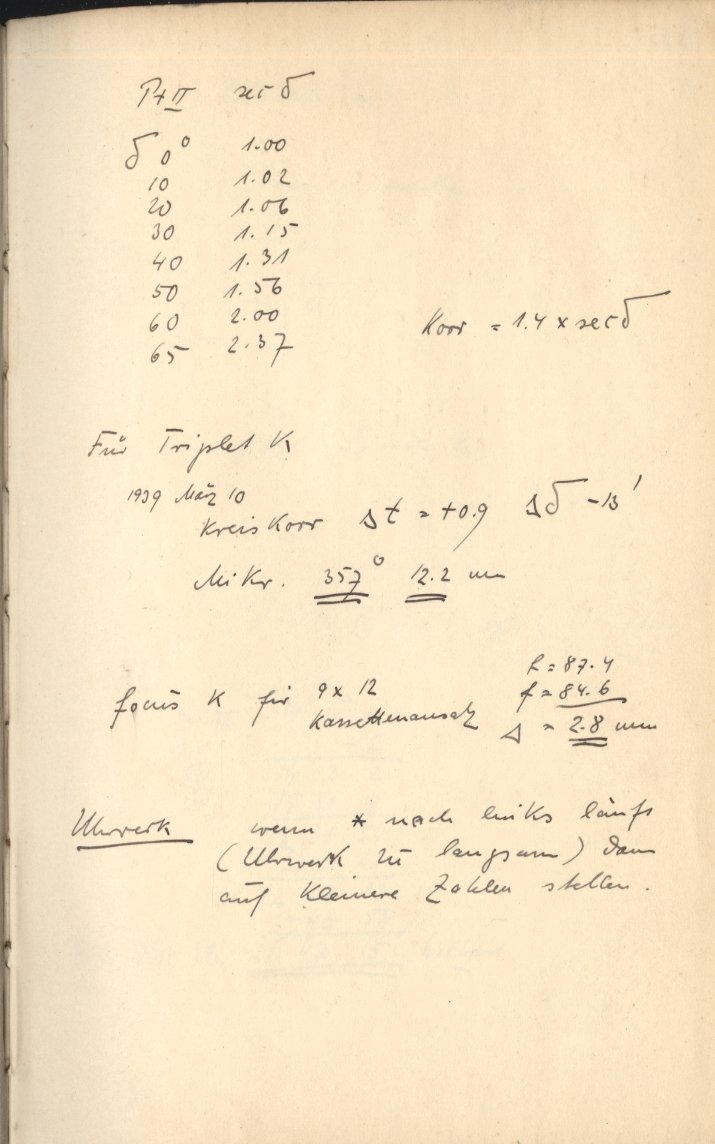 sec δ
δ 0° 1.00
10 1.02
20 1.06
30 1.15
40 1.31
50 1.56
60 2.00
65 2.37
Korr = 1.4 x sec δ
Für Triplet K
1939 März 10
Kreis Korr Δt = +0.9 Δδ -13'
Mikr. 357° 12.2 mm
focus K für 9 x 12
Kassettenansatz
f = 84.6
Δ = 2.8 mm
Uhrwerk wenn * nach links läuft
(Uhrwerk zu langsam) dann
auf Kleinere Zahlen stellen.